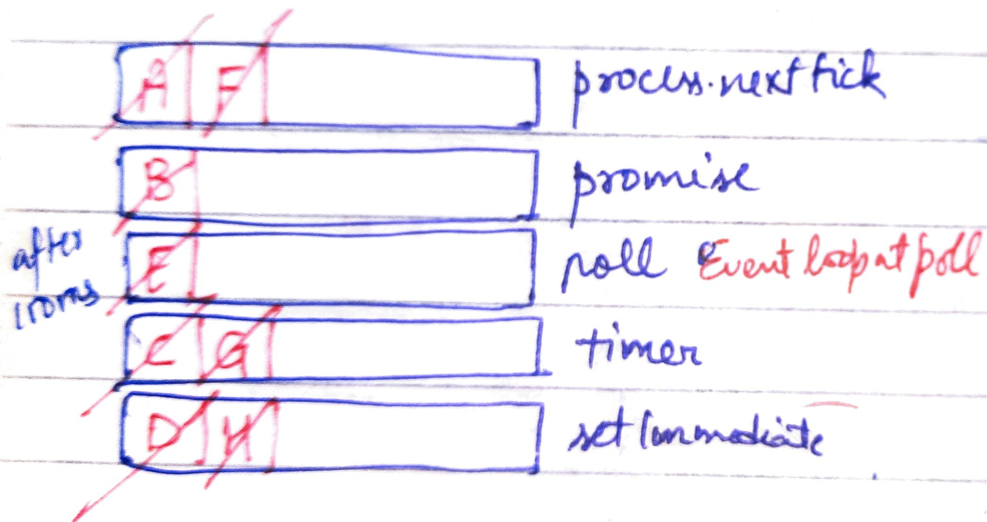 A F process.nexttick
B promise
after
E poll Event loop at poll
C G timer
D H setImmediate